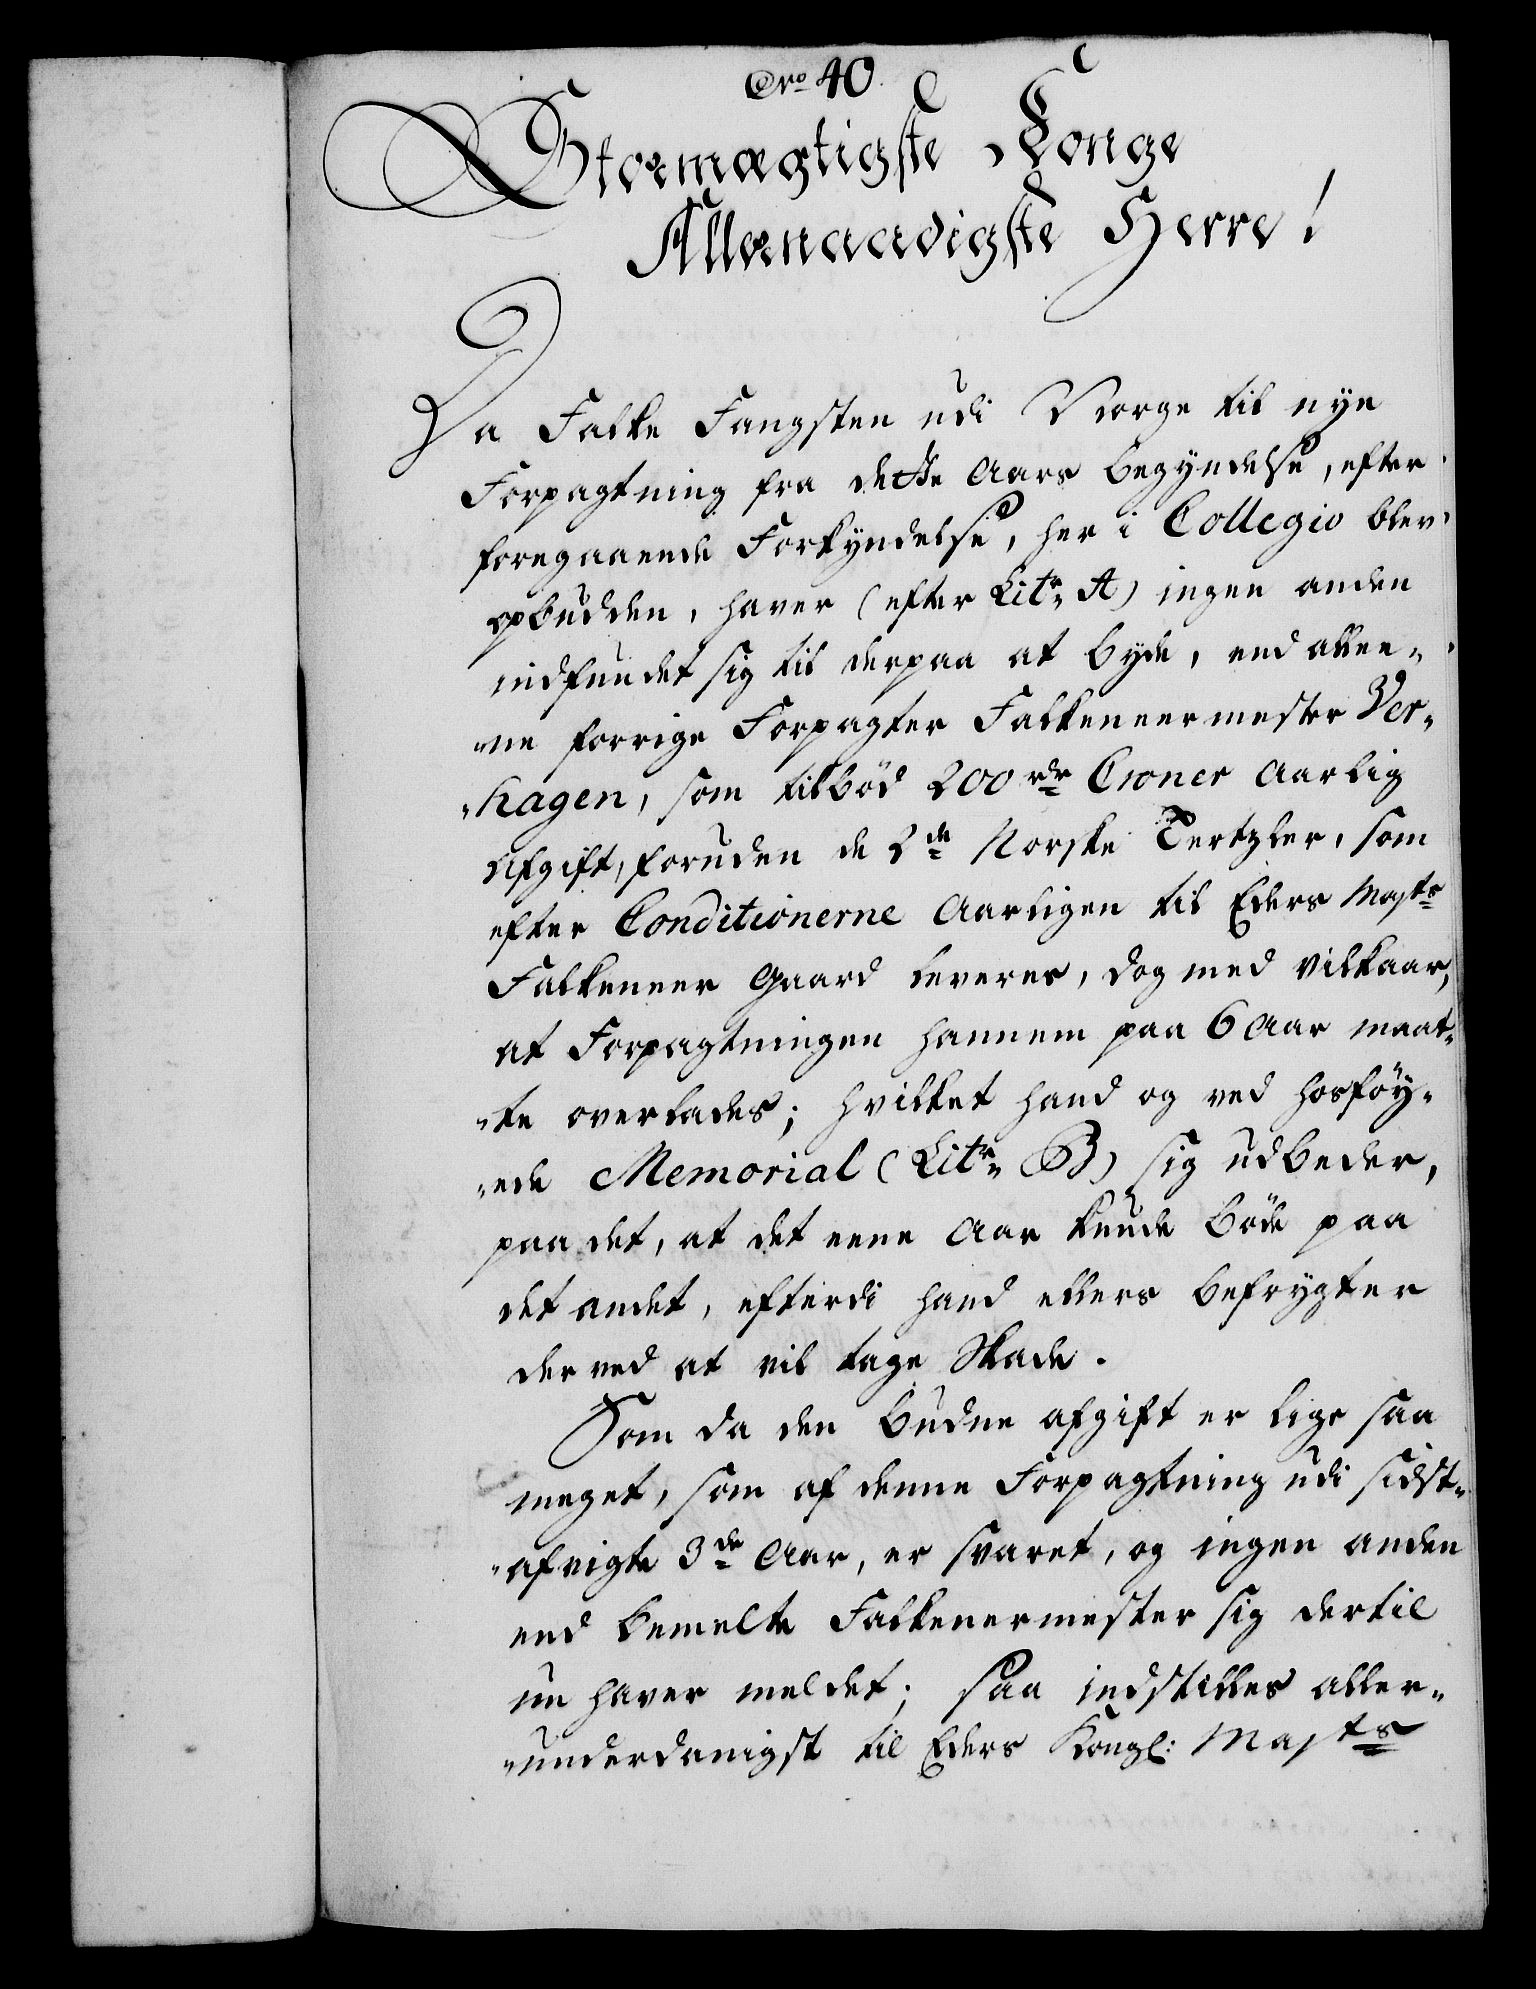 Nro 40.
Stormægtigste Konge
Allernaadigste Herre!
Da Falke Fangsten udi Norge til nye
Forpagtning fra dette Aars begyndelse, efter
foregaaende Forkyndelse, her i Collegio blev
opbudden, haver (efter Litr. A) ingen anden
indfundet sig til derpaa at byde, end allee-
-ne forrige Forpagter Falkeneermester Ver-
-hagen, som tilböd 200 rdr Croner Aarlig
Afgift, foruden de 2de Norske Tertzler, som
efter Conditionerne Aarligen til Eders Majts
Falkeneer Gaard leveres, dog med vilkaar,
at Forpagtningen hannem paa 6 Aar maat-
-te overlades; hvilket hand og ved hosföy-
-ede Memorial (Litr. B) sig udbeder,
paa det, at det eene Aar kunde böde paa
det andet, efterdi hand ellers befrygter
der ved at vil tage Skade.
Som da den budne afgift er lige saa
meget, som af denne Forpagtning udi sidst-
-afvigte 3de Aar, er svaret, og ingen anden
end bemelte Falkenermester sig dertil
nu haver meldet; saa indstilles aller-
-underdanigst til Eders Kongl: Majts